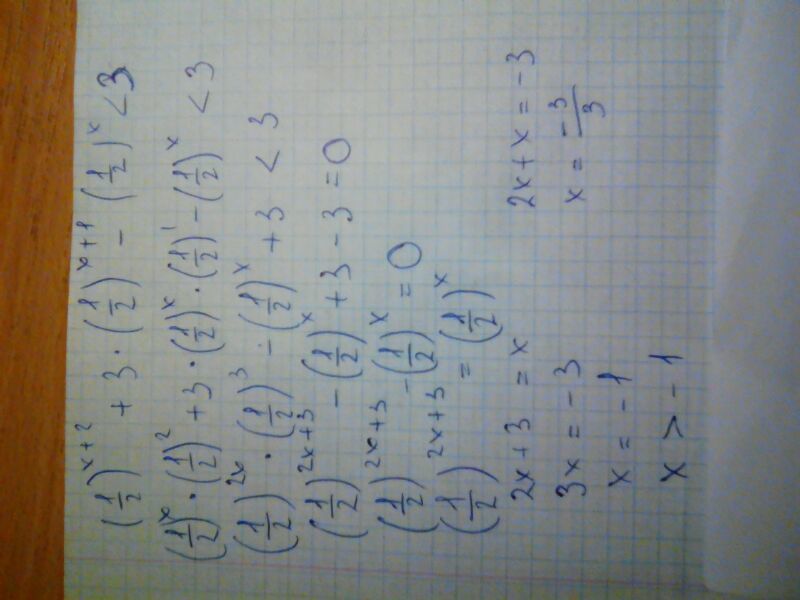 (1/2)^(x+2) + 3·(1/2)^(x+1) − (1/2)^x < 3
(1/2)^x · (1/2)^2 + 3·(1/2)^x · (1/2)^1 − (1/2)^x < 3
(1/2)^(2x) · (1/2)^3 − (1/2)^x + 3 < 3
(1/2)^(2x+3) − (1/2)^x + 3 − 3 = 0
(1/2)^(2x+3) − (1/2)^x = 0
(1/2)^(2x+3) = (1/2)^x
2x+3 = x
2x+x = −3
3x = −3
x = −3/3
x = −1
x > −1